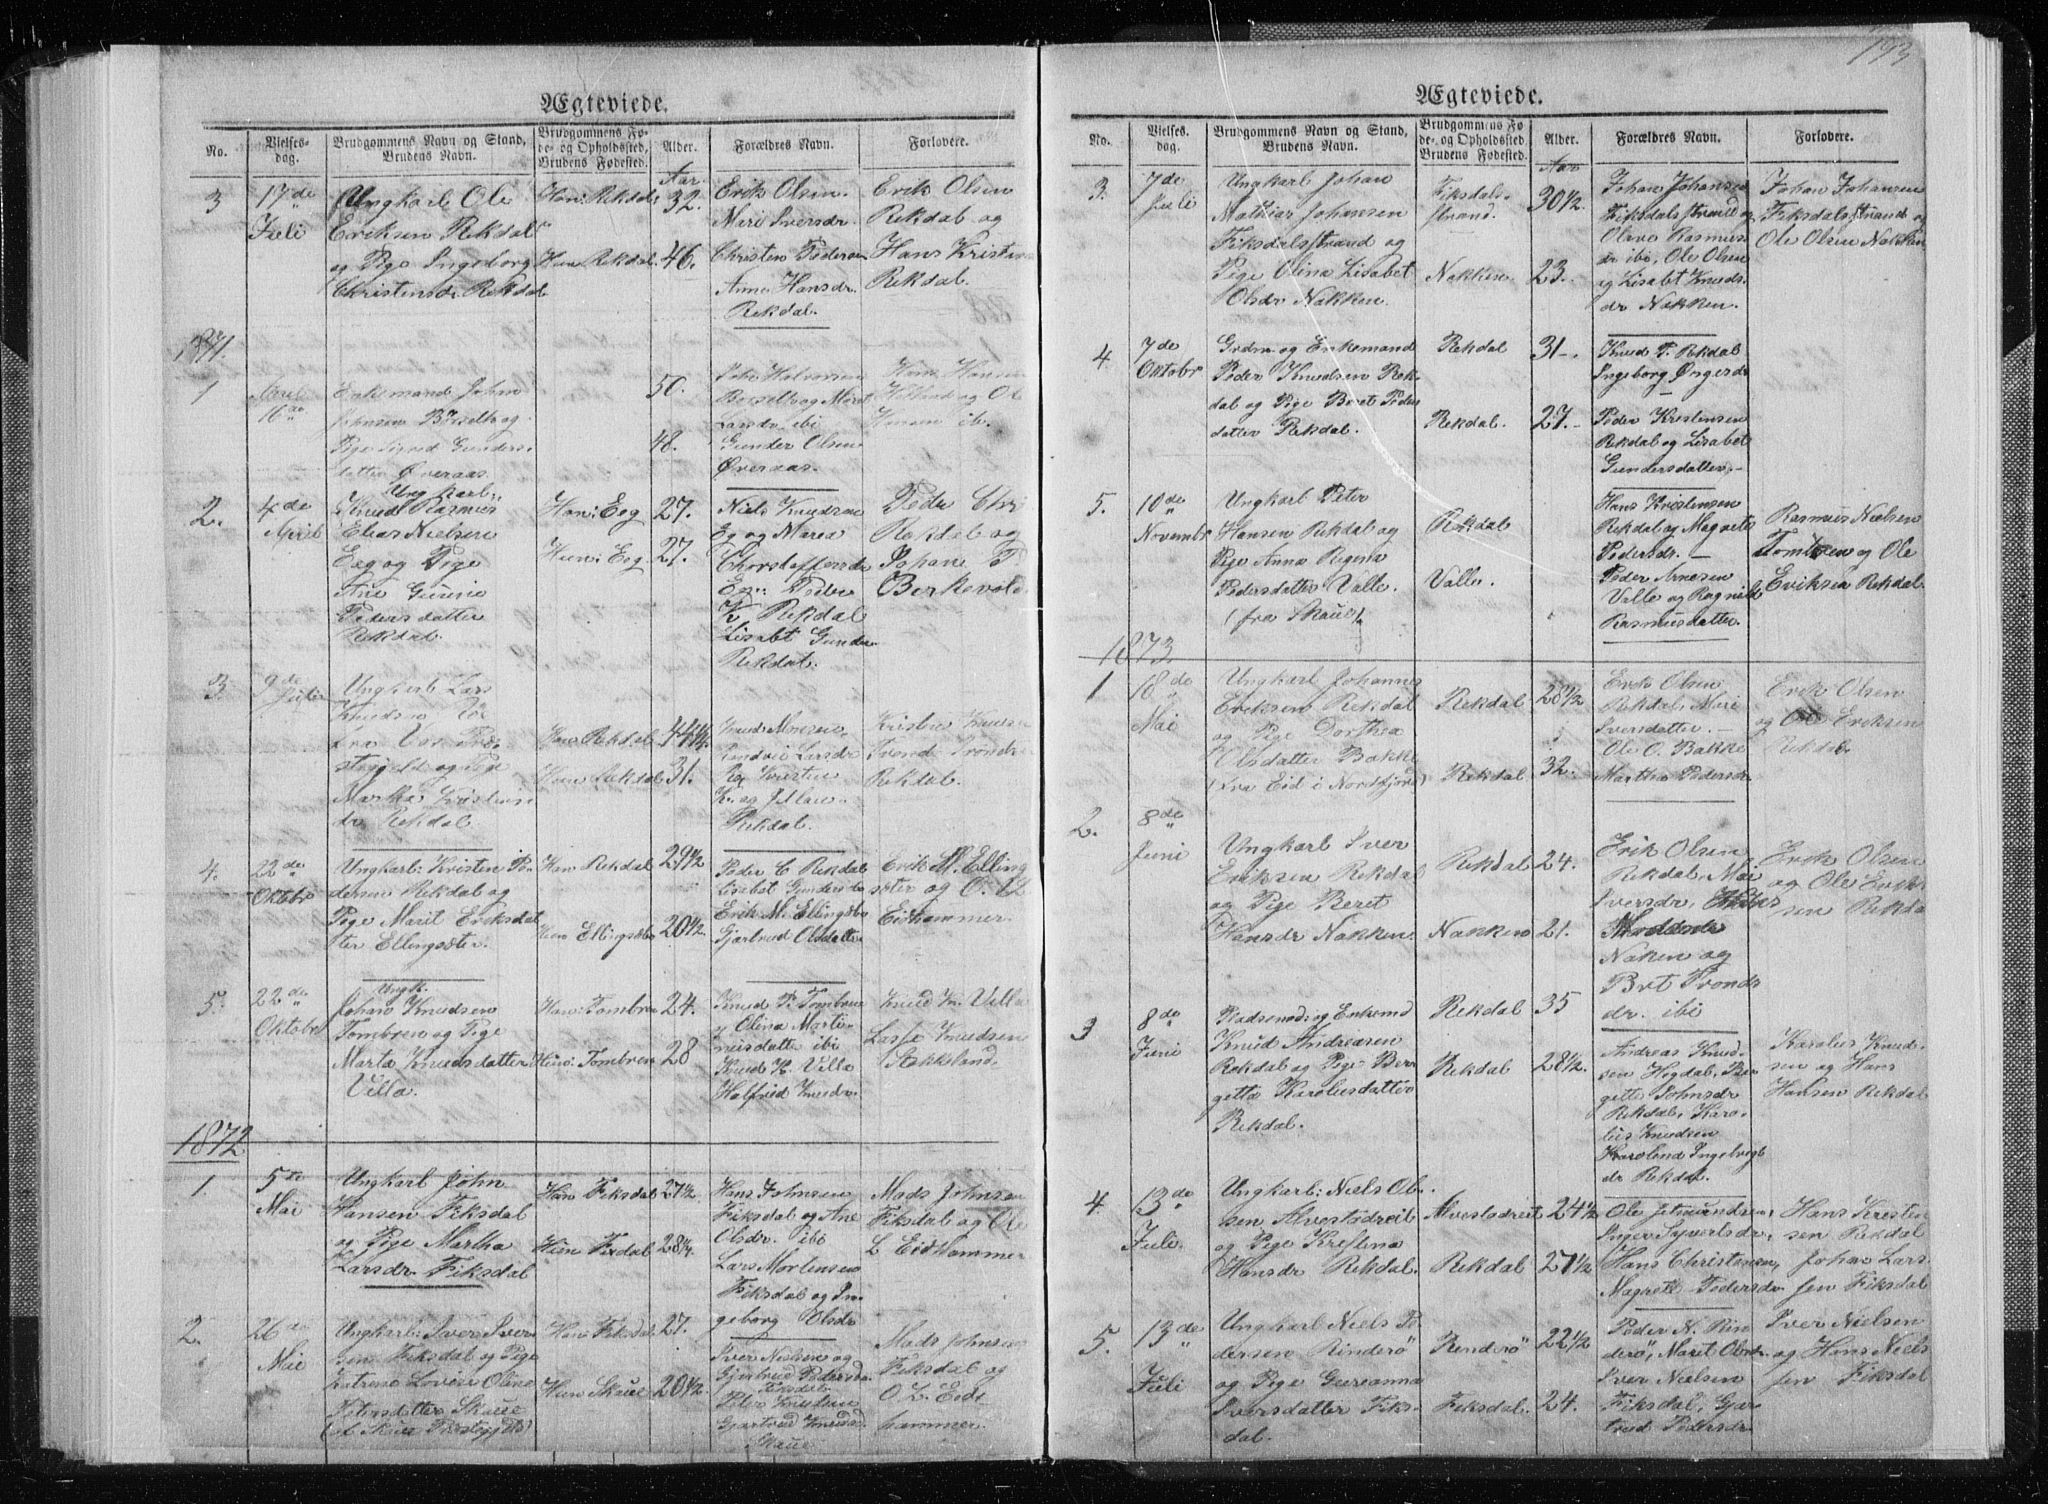 Ægteviede.
No.
Vielses-
dag.
Brudgommens Navn og Stand,
Brudens Navn.
Brudgommens Fø-
de- og Opholdssted,
Brudens Fødested.
Alder.
Forældres Navn.
Forlovere.
Aar.
3
17de
Juli
Ungkarl Ole
Eriksen Rekdal
og Pige Ingeborg
Christensdr Rekdal
Han: Rekdal
Hun Rekdal
32.
46.
Erik Olsen
Mari Iversdr.
Christen Pedersen
Anne Hansdr.
Rekdal.
Erik Olsen
Rekdal og
Hans Kristen
Rekdal.
1871.
1
April
16de
Enkemand John
Johnsen
Pige Sigrid Gunders-
datter Øveraas
50.
48.
Larsdr ibi
Gunder Olsen
Øveraas.
2.
4de
April
Ungkarl:
Knud Rasmus
Elias Nielsen
Eeg og Pige
Ane
Pedersdatter
Rekdal.
Han: Eeg
Hun: Eeg
27.
27.
Niels Knudsen
Eg og Maria
Eg: Peder
K. Rekdal
Lisabt Gunder
Rekdal.
Peder Chri
Rekdal og
Johan P.
Berkevold
3.
9de
Juli
Ungkarl Lars
Knudsen
fra
stegjeld og Pige
Martha Kristens
dr Rekdal.
Han Rekdal
Hun Rekdal
44 1/4
31.
Knud Monsen
Larsdr
Kristen
K. og
Rekdal.
Kristen Knudsen
Svend Trondsen
Rekdal.
4.
22de
Oktobr
Ungkarl: Kristen Pe-
dersen Rekdal og
Pige Marit Eriksdat
ter Ellingsæter.
Han Rekdal
Hun Ellingsæter
29 1/2
20 1/2
Peder C Rekdal
Lisabet Gundersda
Erik M. Ellingsæter
Gjertrud Olsdatter
Erik M. Elling
sæter og O. L
Eidhammer.
5.
22de
Oktobr
Ungk.
Johan Knudsen
Tombren og Pige
Marta Knudsdatter
Villa.
Han: Tombren
Hun: Tombren
24.
28
Knud P. Tombren
og Olina Marti-
nusdatter ibi
Knud K. Villa
Halfrid Knudsdr.
Knud K. Villa
Lasse Knudsen
1872
1.
5te
Mai
Ungkarl John
Hansen Fiksdal
og Pige Martha
Larsdr. Fiksdal
Han Fiksdal
Hun Fixdal
27 1/2
28 1/4
Hans Johnsen
Fiksdal og Ane
Olsdr. ibi
Lars Mortensen
Fiksdal og In-
geborg Olsdr
Mads Johnsen
Fiksdal og Ole
L Eidhammer
2.
26de
Mai
Ungkarl: Iver Iver-
sen Fiksdal og Pige
Katrine Lovise Oline
Petersdatter Skaue
(af Skaue Præstegjeld)
Han Fiksdal
Hun Skaue
27.
20 1/2
Iver Nielsen og
Gjertrud Pedersdr
Fiksdal
Peter Knudsen
Gjartrud Knudsdr
Skaue
Mads Johnsen
Fiksdal og
O. L. Eid-
hammer.
193
Ægteviede.
No.
Vielses-
dag.
Brudgommens Navn og Stand,
Brudens Navn.
Brudgommens Fø
de- og Opholdssted
Brudens Fødested.
Alder.
Forældres Navn.
Forlovere.
Aar
3.
7de
Juli
Ungkarl Johan
Mathias Johansen
Fiksdalsstrand og
Pige Olina Lisabet
Olsdr Nakken.
Fiksdals-
strand.
Nakken.
30 1/2
23.
Johan Johansen
Fiksdalsstrand og
Olave Rasmus-
dr ibi, Ole Olsen
og Lisabt Knuds-
dr Nakken.
Johan Johansen
Fiksdalsstrand og
Ole Olsen Nakken
4.
7de
Oktobr
Grdm. og Enkemand
Peder Knudsen Rek-
dal og Pige Beret Peders
datter Rekdal.
Rekdal
Rekdal.
31.
27.
Knud P. Rekdal
Ingeborg
Peder Kristensen
Rekdal og Lisabet
Gundersdatter.
5.
10de
Novembr
Ungkarl Peter
Hansen Rekdal og
Pige Anna Regina
Pedersdatter Valle.
(fra Skaue)
Rekdal
Valle.
Hans Kristensen
Rekdal og Magrete
Pedersdr.
Peder Arnesen
Valle og Ragnild
Rasmusdatter.
Rasmus Nielsen
Tombren og Ole
Eriksen Rekdal.
1873
1
18de
Mai
Ungkarl Johannes
Eriksen Rekdal
og Pige Dorthea
Olsdatter Bakke
(fra Eid i Nordfjord)
Rekdal
Rekdal
28 1/2
32.
Erik Olsen
Rekdal, Mari
Iversdatter.
Ole O. Bakke
Martha Pedersdr.
Erik Olsen
og Ole Eriksen
Rekdal.
2.
8de
Juni
Ungkarl Iver
Eriksen Rekdal
og Pige Beret
Hansdr Nakken.
Rekdal
Nakken
24.
21.
Erik Olsen
Rekdal, Mari
Iversdr,
Naken og
Brt Tronds
dr. ibi
Erik Olsen
og Ole Erik-
sen Rekdal
3
8de
Juni
Pladsmd: og Enkemd
Knud Andreasen
Rekdal og Pige Ber-
gitta Karolusdatter
Rekdal.
Rekdal
Rekdal
35
28 1/2.
Andreas Knud-
sen Hegdal, Ber
gitte Johnsdr
Rekdal, Karo-
lus Knudsen
Karolena Ingebrigt
dr Rekdal.
Karolus Knud-
sen og Hans
Hansen Rekdal
4.
13de
Juli.
Ungkarl: Niels Ol-
sen Alvestadreit
og Pige Kristena
Hansdr Rekdal.
Alvestadreit
Rekdal
24 1/2
27 1/2
Ole Jetmundsen,
Inger Syvertsdr,
Hans Christensen,
Magrete Pedersdr
Hans Kristen
sen Rekdal
Johan Lars
sen Fiksdal
5.
13de
Juli
Ungkarl Niels Pe-
dersen Rinderø
og Pige Gureanna
Iversdatter Fiks-
dal.
Renderø
Fiksdal
22 1/2
24.
Peder N. Rin
derø, Marit Olsdr.
Iver Nielsen
Fiksdal, Gjar
trud Pedersdr.
Iver Nielsen
og Hans Niels
sen Fiksdal